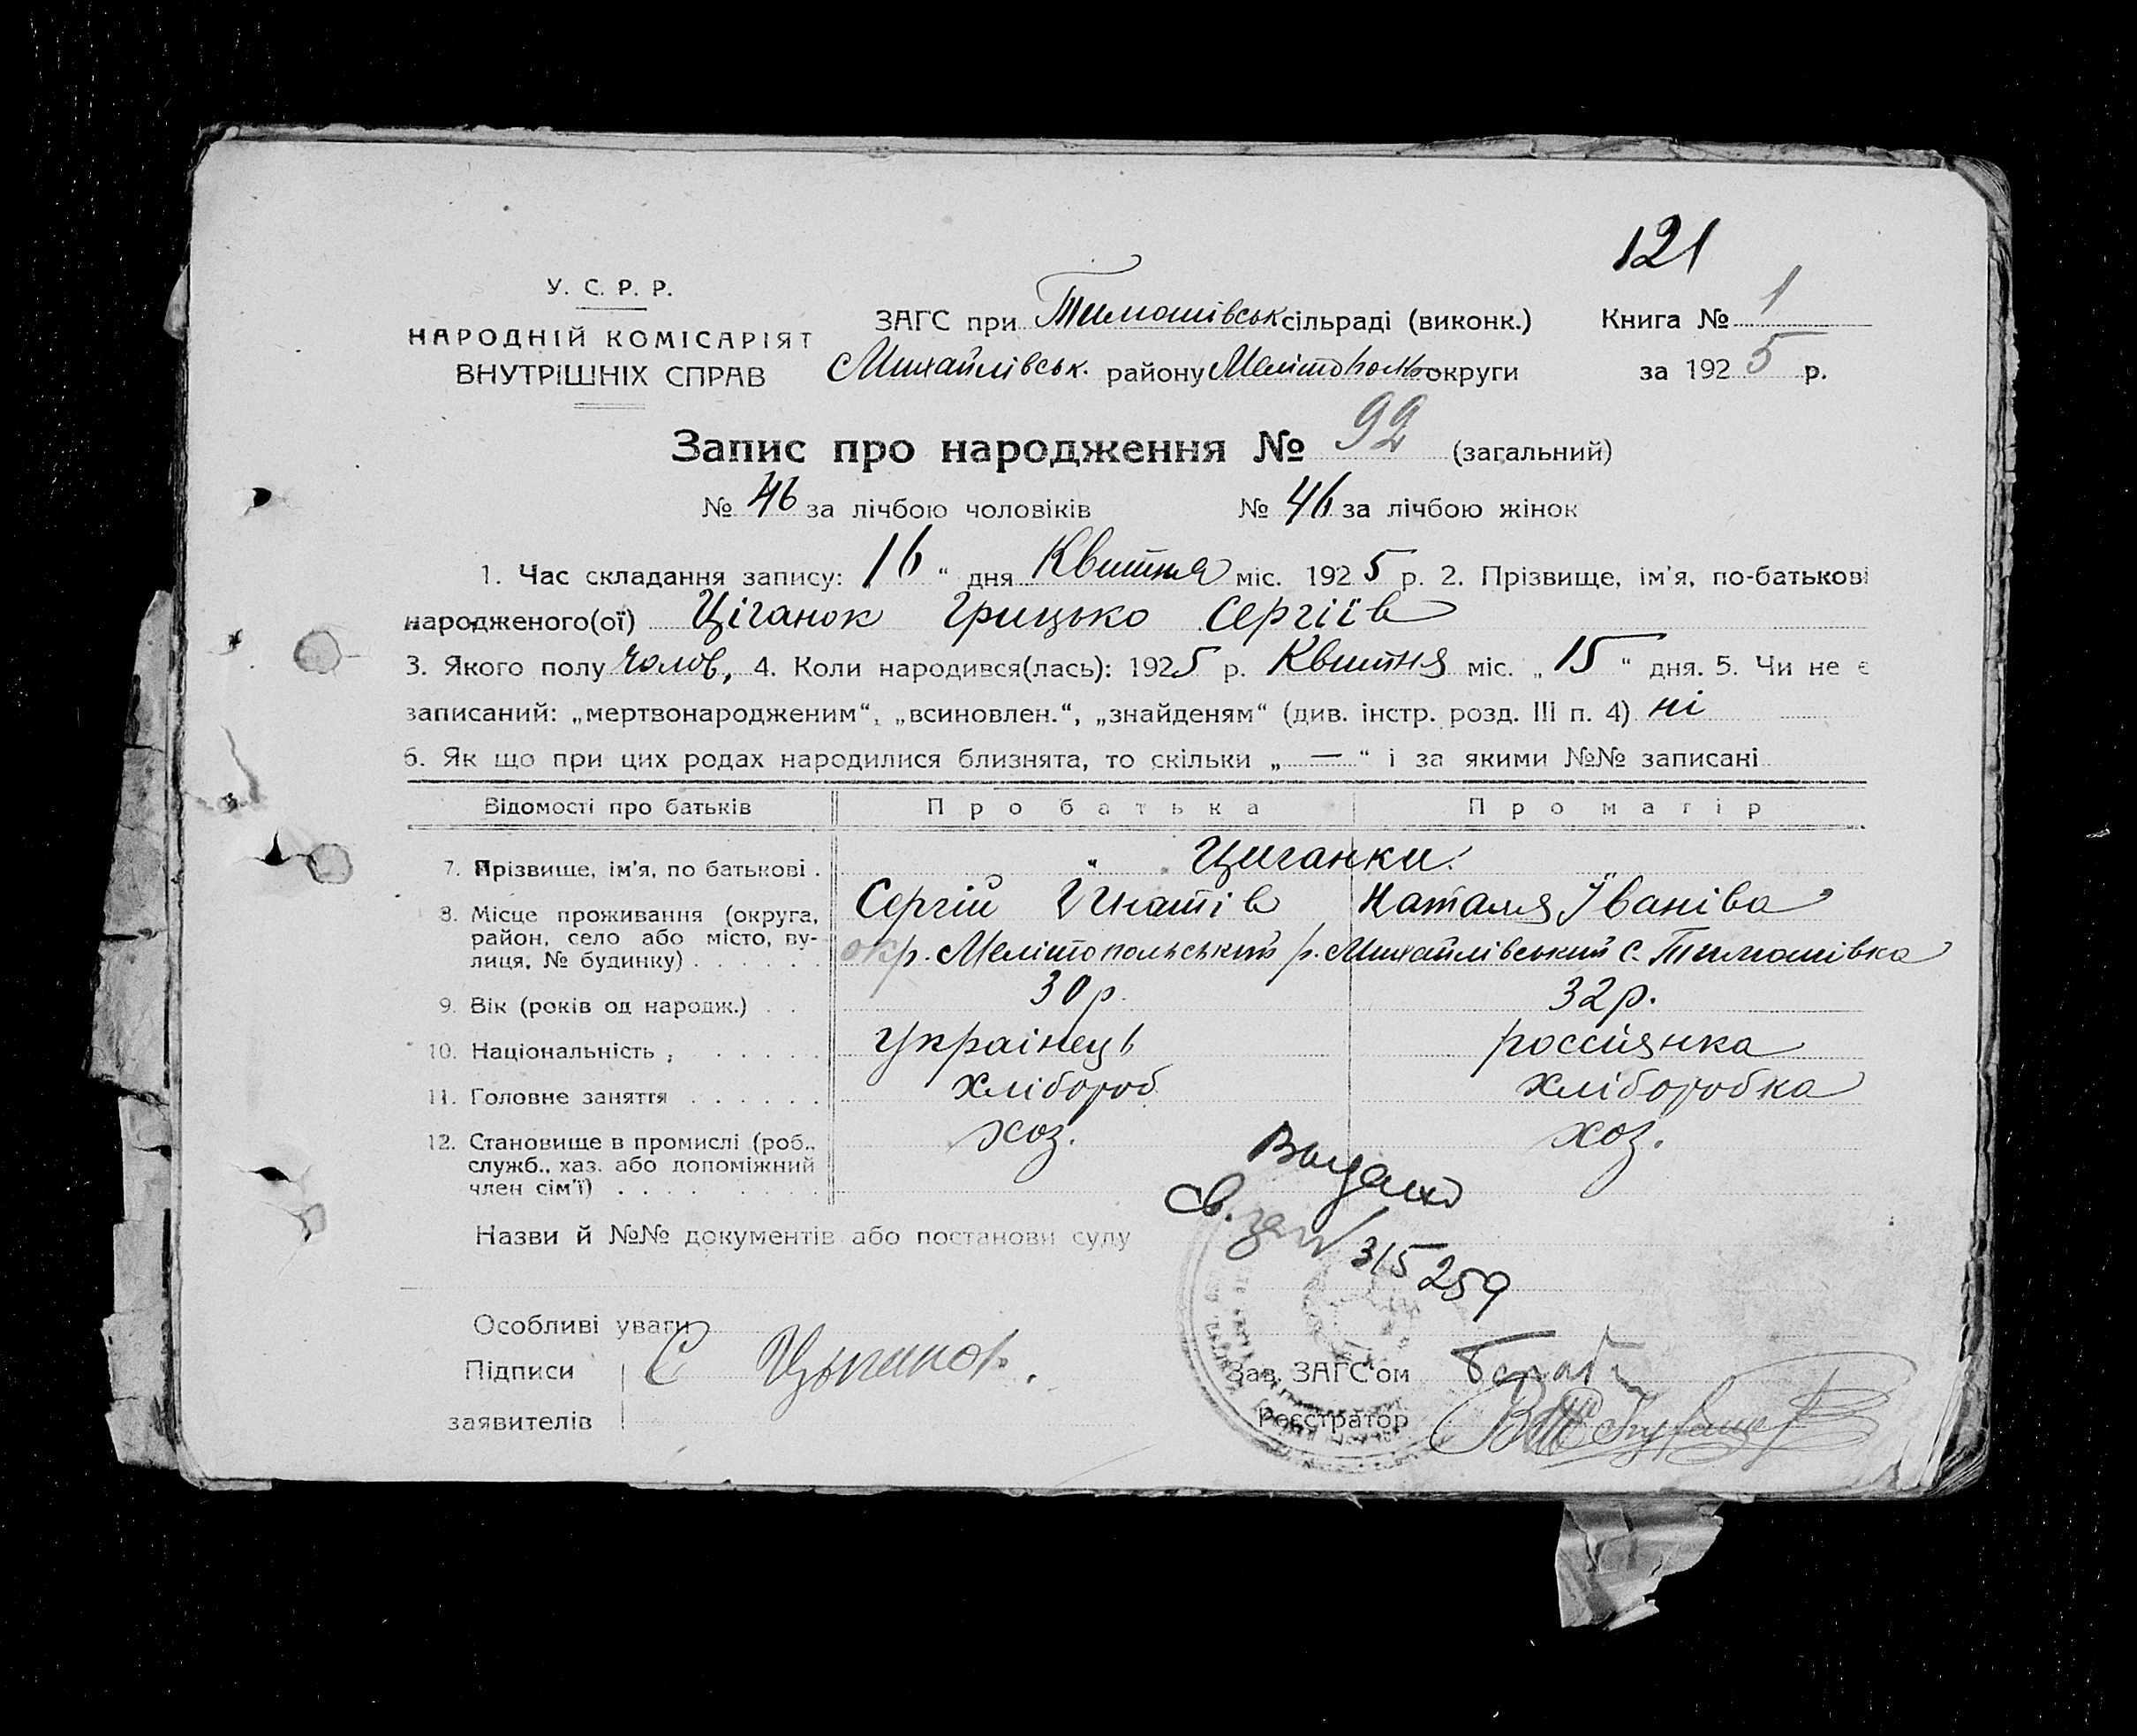 121
У. С. Р. Р.
НАРОДНІЙ КОМІСАРІЯТ
ВНУТРІШНІХ СПРАВ
ЗАГС при Тимошівськ сільраді (виконк.)
Михайлівськ. району Мелітополь округи
Книга № 1
за 1925 р.
Запис про народження № 92 (загальний)
№ 46 за лічбою чоловіків № 46 за лічбою жінок
1. Час складання запису: 16 “ дня Квитня міс. 1925 р. 2. Прізвище, ім'я, по-батькові
народженого(ої) Ціганок Грицько Сергіїв
3. Якого полу чолов, 4. Коли народився(лась): 1925 р. Квитня міс. „ 15 “ дня. 5. Чи не є
записаний: „мертвонародженим“, „всиновлен.“, „знайденям“ (див. інстр. розд. III п. 4) ні
6. Як що при цих родах народилися близнята, то скільки „ — “ і за якими №№ записані
Відомості про батьків Про батька Про матір
7. Прізвище, ім'я, по батькові . " Циганки.
Сергій Игнатів Наталя Іваніва
8. Місце проживання (округа,
район, село або місто, ву-
лиця, № будинку) . . . . . . окр. Мелітопольський р. Михайлівський с. Тимошівка
9. Вік (років од народж.) . . 30 р. 32 р.
10. Національність , . . . . . українець россіянка
11. Головне заняття . . . . . . хлібороб хліборобка
12. Становище в промислі (роб.,
служб., хаз. або допоміжний
член сім'ї) . . . . . . . . хоз. хоз.
Выдано
св. 315259
Назви й №№ документів або постанови суду
Особливі уваги
Підписи С Цыганок.
заявителів
Зав. ЗАГС'ом
Реєстратор